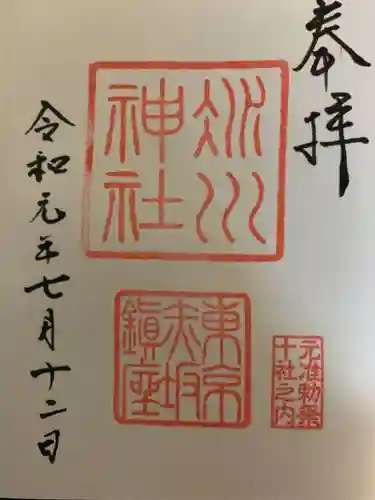 奉拝
氷川
神社
東京
赤坂
鎮座
元准勅祭
十社之内
令和元年七月十二日